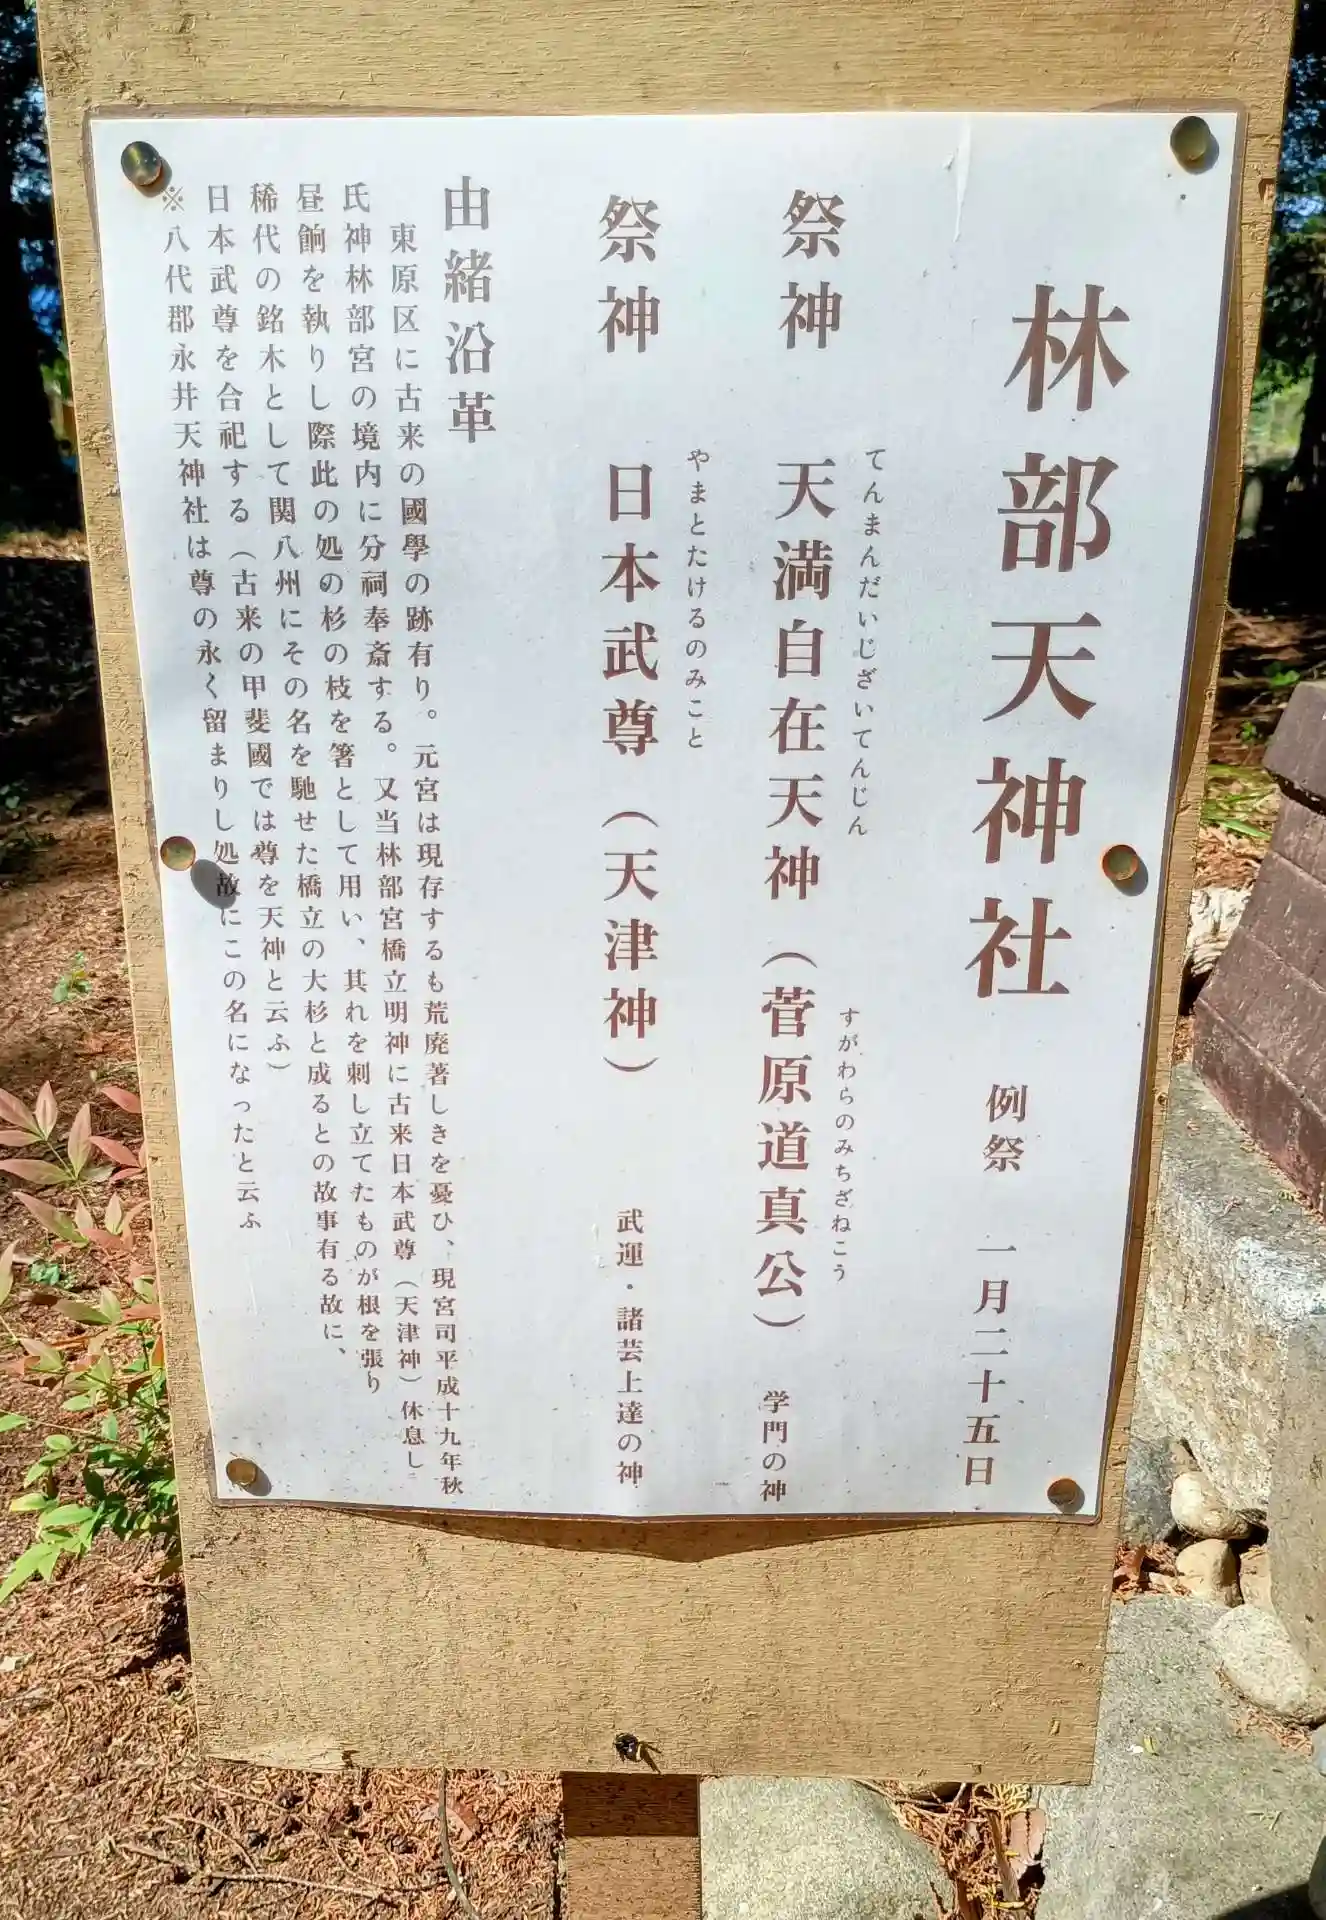 林部天神社 例祭 一月二十五日
てんまんだいじざいてんじん すがわらのみちざねこう
祭神 天満自在天神（菅原道真公） 学門の神
やまとたけるのみこと
祭神 日本武尊（天津神） 武運・諸芸上達の神
由緒沿革
東原区に古来の國學の跡有り。元宮は現存するも荒廃著しきを憂ひ、現宮司平成十九年秋
氏神林部宮の境内に分祠奉斎する。又当林部宮橋立明神に古来日本武尊（天津神）休息し
昼餉を執りし際此の処の杉の枝を箸として用い、其れを刺し立てたものが根を張り
稀代の銘木として関八州にその名を馳せた橋立の大杉と成るとの故事有る故に、
日本武尊を合祀する（古来の甲斐國では尊を天神と云ふ）
※八代郡永井天神社は尊の永く留まりし処故にこの名になったと云ふ